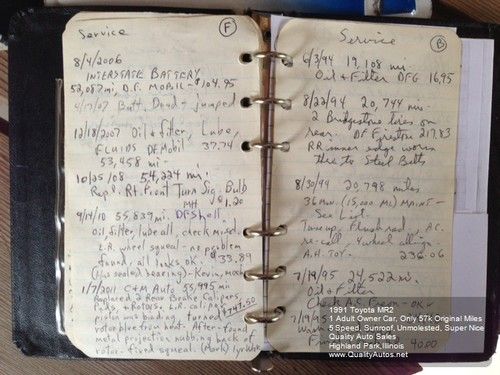 Service
F
8/4/2006
INTERSTATE BATTERY
52,087 mi, D.F. MOBIL - $104.95
4/7/07 Batt. Dead - jumped
12/18/2007 Oil & filter, Lube,
FLUIDS DF Mobil 37.74
53,458 mi -
10/25/08 54,224 mi
Repl. Rt. Front Turn Sig. Bulb
MH $1.20
9/14/10 55,839 mi. DF Shell
oil, filter, lube all, check misc.
L.R. wheel squeal - no problem
found, all looks ok. $33.89
(Has sealed bearing) - Kevin, mech
1/7/2011 C&M Auto 55,995 mi
Replaced 2 Rear Brake Calipers,
Pads & Rotors. L.R. caliper
piston was binding, turned
rotor blue from heat. After - found
metal projection rubbing back of
rotor - fixed squeal. (Mark)
Service
B
6/3/94 19,108 mi.
Oil & Filter DFG 16.95
8/22/94 20,744 mi.
2 Bridgestone tires on
rear. DF Firestone 217.83
RR inner edge worn
thru to Steel Belts
8/30/94 20,798 miles
36 Mo. (15,000 Mi) Maint -
See List.
Tune up, flush rad, A.C.
re-call, 4 wheel align.
A.H. TOY. 236.06
7/19/95 24,522 mi.
Oil & Filter
Check AC Freon - OK
7/19/95
40.00
1991 Toyota MR2
1 Adult Owner Car, Only 57k Original Miles
5 Speed, Sunroof, Unmolested, Super Nice
Quality Auto Sales
Highland Park, Illinois
www.QualityAutos.net